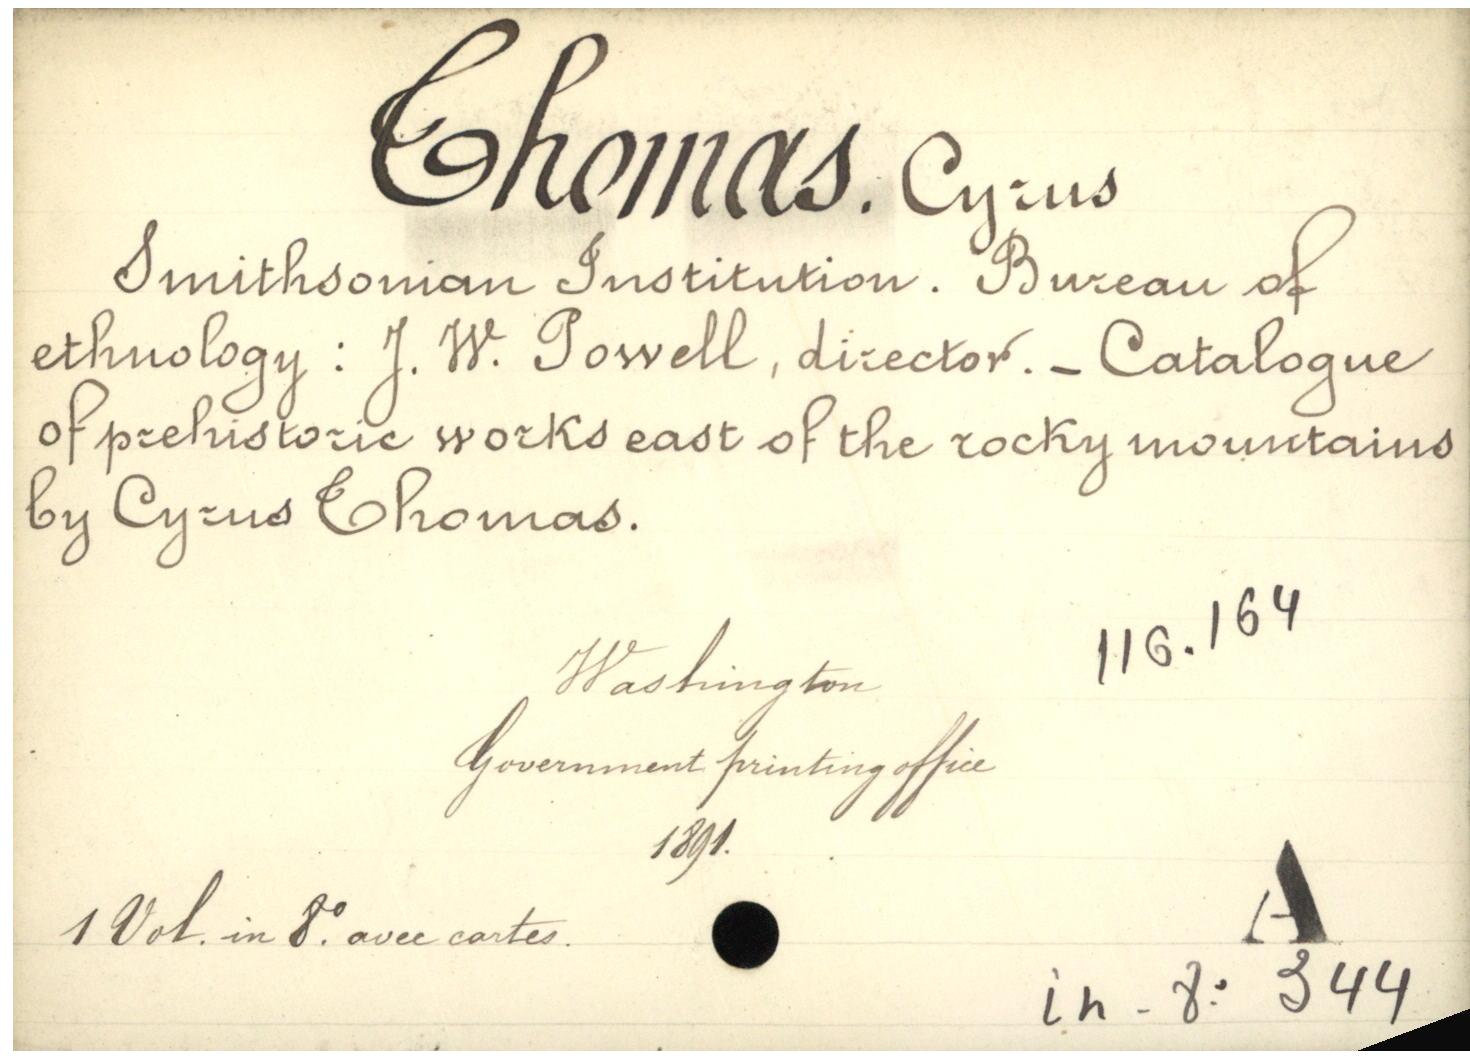 Thomas. Cyrus
Smithsonian Institution. Bureau of
ethnology : J. W. Powell, director. - Catalogue
of prehistoric works east of the rocky mountains
by Cyrus Thomas.
116.164
Washington
Government printing office
1891.
1 Vol. in 8°. avec cartes.
A
in-8° 344